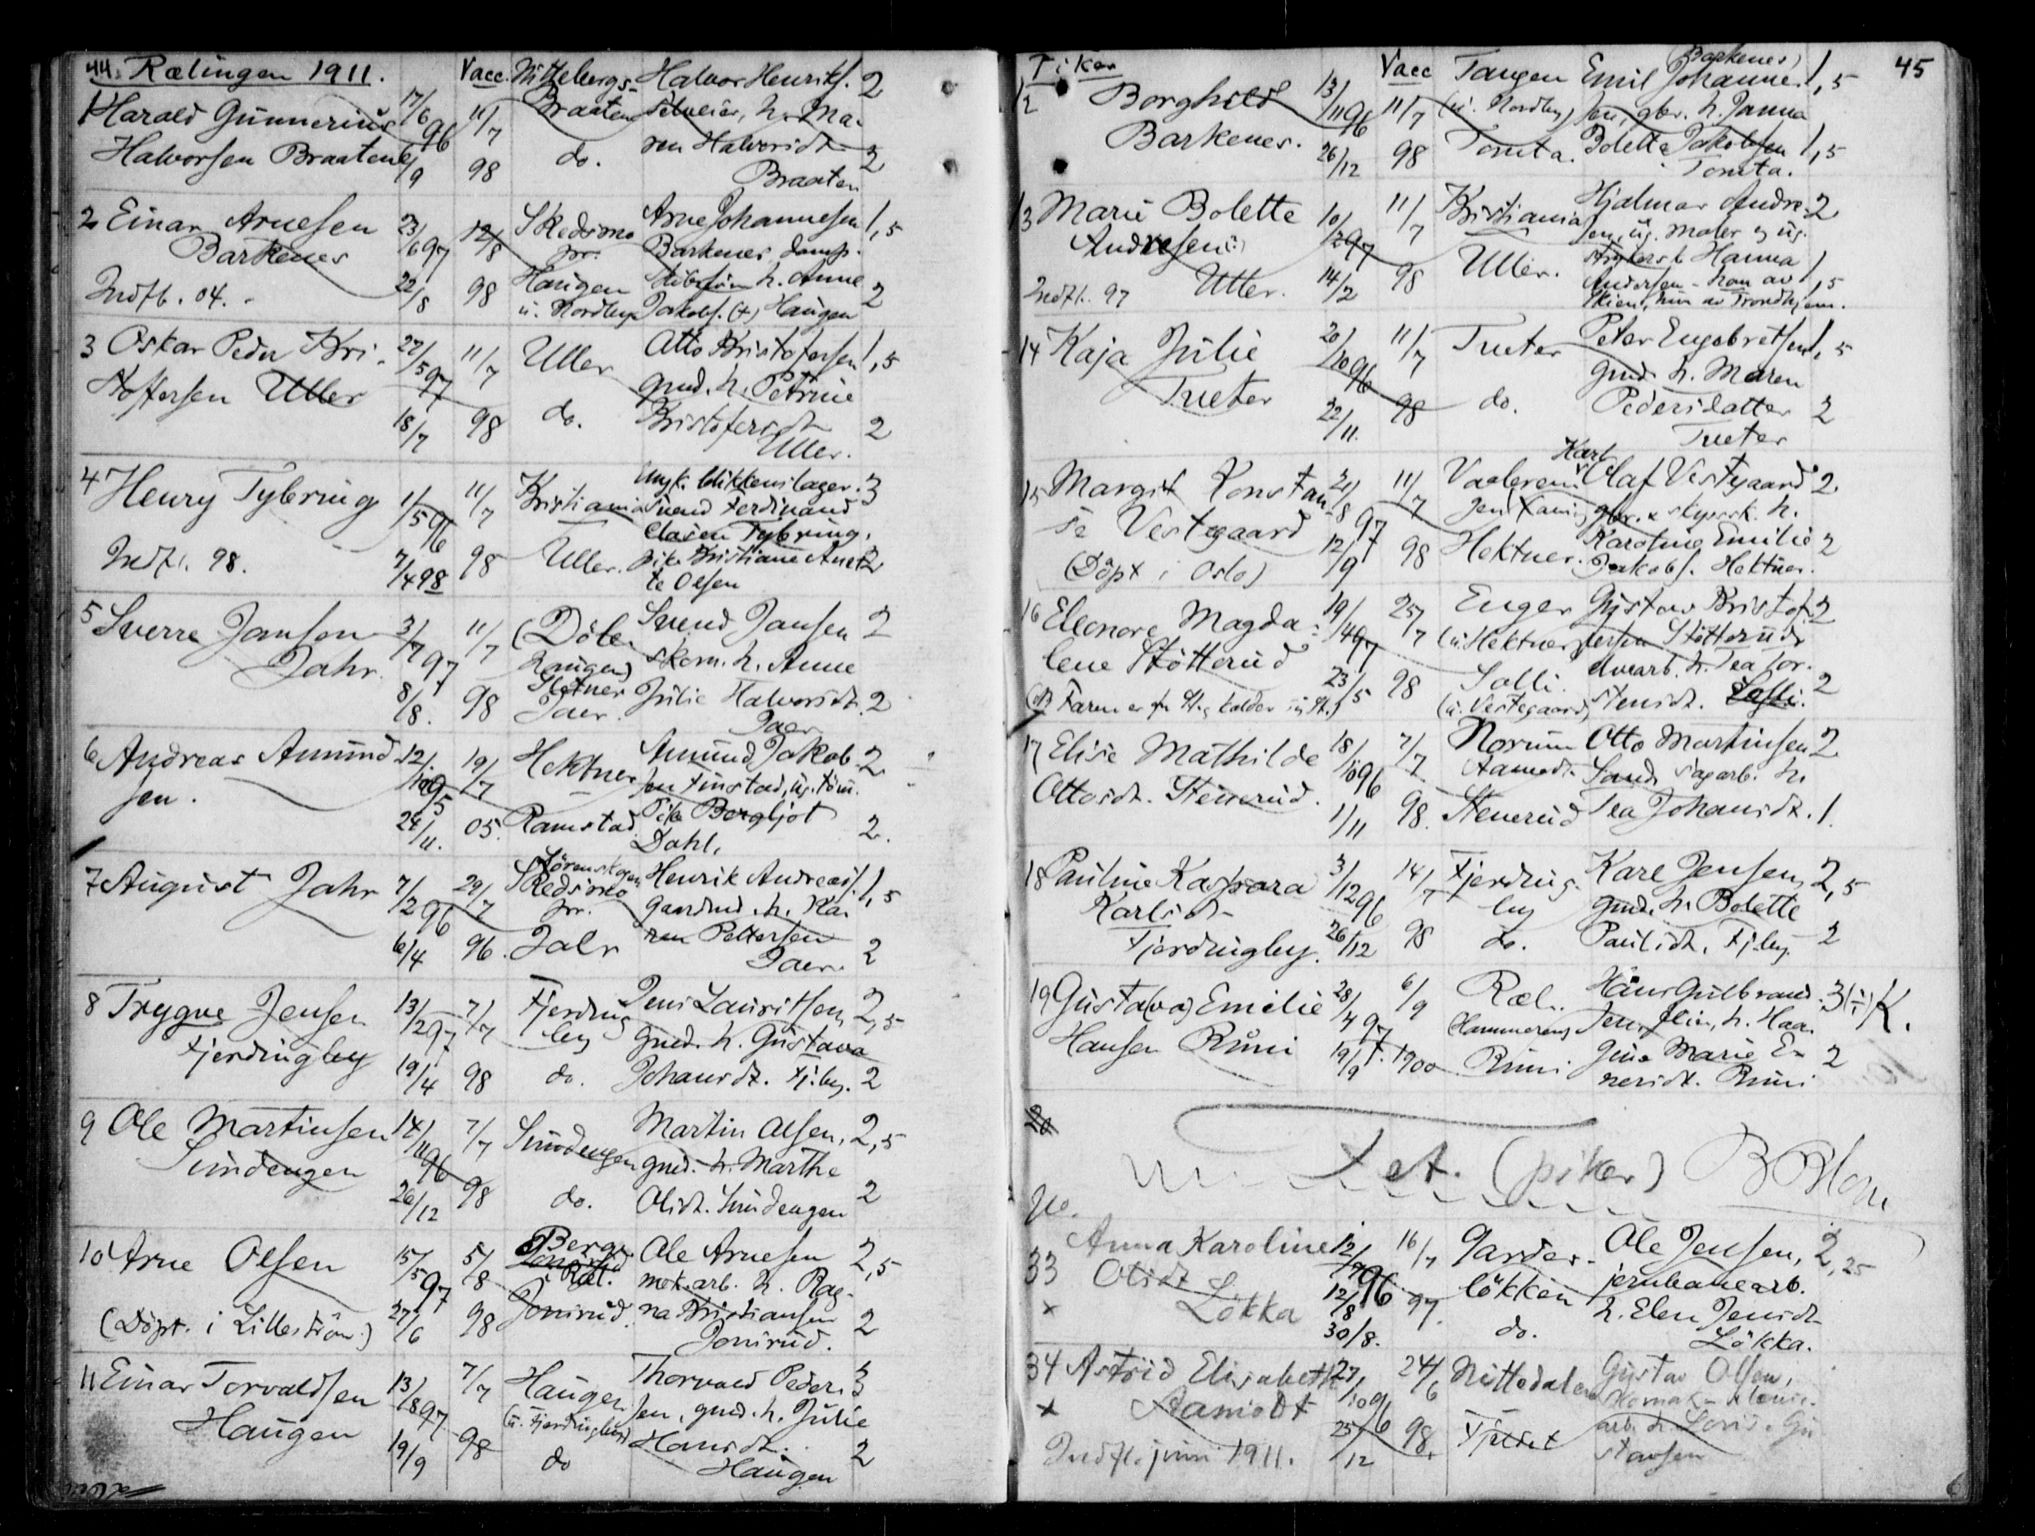 44. Rælingen 1911.
Vacc. Nittebergs- Halvor Henriks. 2
1 Harald Gunnerius 17/6 96 11/7 Braaten selveier, h. Ma-
Halvorsen Braaten 6/9 98 do. ren Halvorsdt. 2
Braaten
2 Einar Arnesen 23/6 97 12/8 Skedsmo Arne Johannesen 1,5
Barkenes pr. Barkenes, damp-
22/8 98 Haugen h. Anne 2
Indfl. 04. u. Nordby Jakobs. (+) Haugen
3 Oskar Peder Kri- 27/5 97 11/7 Uller Otto Kristofersen 1,5
stoffersen Uller gmd. h. Petrine
18/7 98 do. Kristofersdt. 2
Uller.
4 Henry Tybring 1/5 96 11/7 Kristiania Ungk. blikkenslager. 3
Svend Ferdinand
Clasen Tybring,
Indfl. 98. 7/4 98 98 Uller. pike Kristiane Anet- 2
te Olsen
5 Sverre Jansen 3/7 97 11/7 (Döle- Svend Jansen 2
Jahr haugen) skom. h. Anne
8/8. 98 Sletner Julie Halvorsdt. 2
Jaer. Jaer
6 Andreas Amund- 12/10 95 19/7 Hektner Amund Jakob- 2
sen. sen Finstad, ug. töm.
24/11. 05. Ramstad. Pike Bergljot 2.
Dahl.
7 August Jahr 7/2 96 29/7 Lörenskogen Henrik Andreas. 1,5
Skedsmo pr. gaardmd. h. Ka-
6/4 96. Jahr ren Pettersen 2
Jaer.
8 Trygve Jensen 13/2 97 7/7 Fjerding- Jens Lauritsen, 2,5
Fjerdingby by gmd. h. Gustava
19/4 98 do. Johansdt. Fj.by. 2
9 Ole Martinsen 14/11 96 7/7 Sundengen Martin Olsen, 2,5
Sundengen gmd. h. Marthe
26/12 98 do. Olsdt. Sundengen 2
10 Arne Olsen 15/5 97 5/8 Berg Ole Arnesen 2,5
i Ræl. mek. arb. h. Rag-
(Döpt. i Lilleström.) 27/6 98 Jonsrud. na Kristiansen 2
Jonsrud.
11 Einar Torvaldsen 13/8 97 7/7 Haugen Thorvald Peder- 3
Haugen (u. Fjerdingby) sen, gmd. h. Julie
19/9 98 do Hansdt. 2
Haugen
Piker Vacc 45
12 Borghild 13/11 96 11/7 Tangen Emil Johanne- (Barkenes) 1,5
Barkenes. (u. Nordby) sen, gbr. h. Janna
26/12 98 Tomta. Bolette Jakobsen 1,5
Tomta.
13 Marie Bolette 10/12 97 11/7 Kristiania Hjalmar Andre- 2
Andresen sen, ug. maler og ug.
Uller. 14/2 98 Uller. Hanna 1,5
Indfl. 97 Andersen - han av
Skien, hun av Trondhjem.
14 Kaja Julie 20/10 96 11/7 Tueter Peter Engebretsen 1,5
Tueter gmd. h. Maren
22/11. 98 do. Pedersdatter 2
Tueter
15 Margit Konstan- 21/8 97 11/7 Vaaleren. Karl Olaf Vestgaard 2
se Vestgaard gbr. & skyssk. h.
12/9 98 Hektner. Karoline Emilie 2
(Döpt i Oslo) Jakobs. Hektner.
16 Eleonore Magda- 19/4 97 25/7 Enger Gustav Kristof- 2
lene Stötterud (u. Hektner) fersen Stötterud
23/5 98 Solli. elvearb. h. Tea Tor- 2
(u. Vestegaard) stensdt. Solli.
17 Elise Mathilde 18/10 96 7/7 Norum Otto Martinsen 2
Ottosdt. Stenerud. Aamodt. Sand, sagarb. h.
1/11 98. Stenerud Tea Johansdt. 1.
18 Pauline Kaspara 3/12 96 14/7 Fjerding- Karl Jensen, 2,5
Karlsdt. by gmd. h. Bolette
Fjerdingby. 26/12 98 do. Paulsdt. Fj.by. 2
19 Gustava Emilie 28/4 97 6/9 Ræl. Hans Gulbrand- 3(÷) K.
Hansen Runi (Hammereng) sen, h. Haa-
19/9 1900 Runi gine Marie Ei- 2
nersdt. Runi
20
tet. (piker) B Blom
No.
33 Anna Karoline 12/7 96 16/7 Garder- Ole Jensen, 2,25
Olsdt. lökken jernbanearb.
x Lökka 12/8 97. h. Elen Jensdt.
30/8. do. Lökka.
34 Astrid Elisabeth 27/10 96 24/6 Nittedalen Gustav Olsen,
x Aamodt
25/12 98. Fjeldet arb. h. Lovise Gu-
Indfl. juni 1911. stavsen